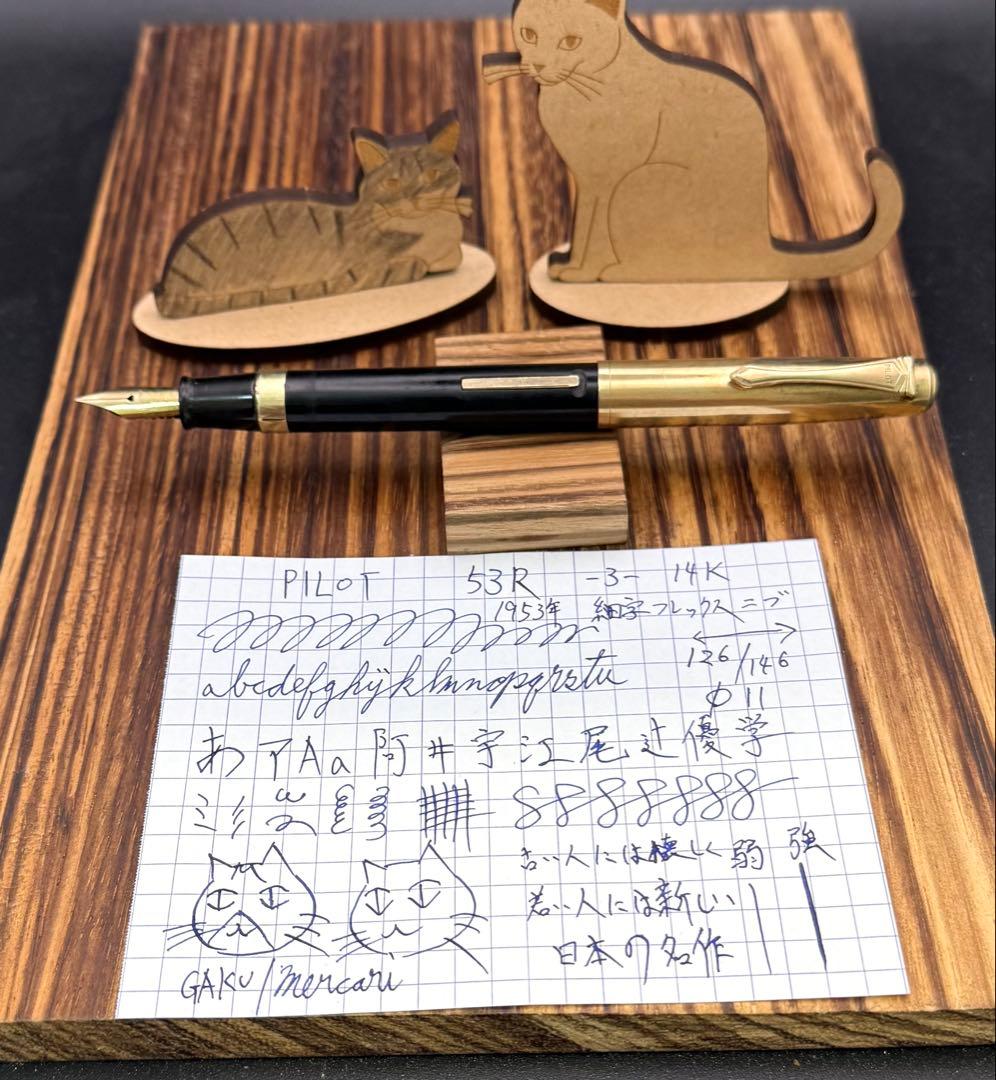 PILOT 53R -3- 14K
1953年 細字フレックスニブ
126/146
abcdefghijklmnopqrstu
φ11
あアAa阿井宇江尾辻優学
ミ
8888888
古い人には懐しく 弱 強
若い人には新しい
日本の名作
GAKU/mercari
PILOT